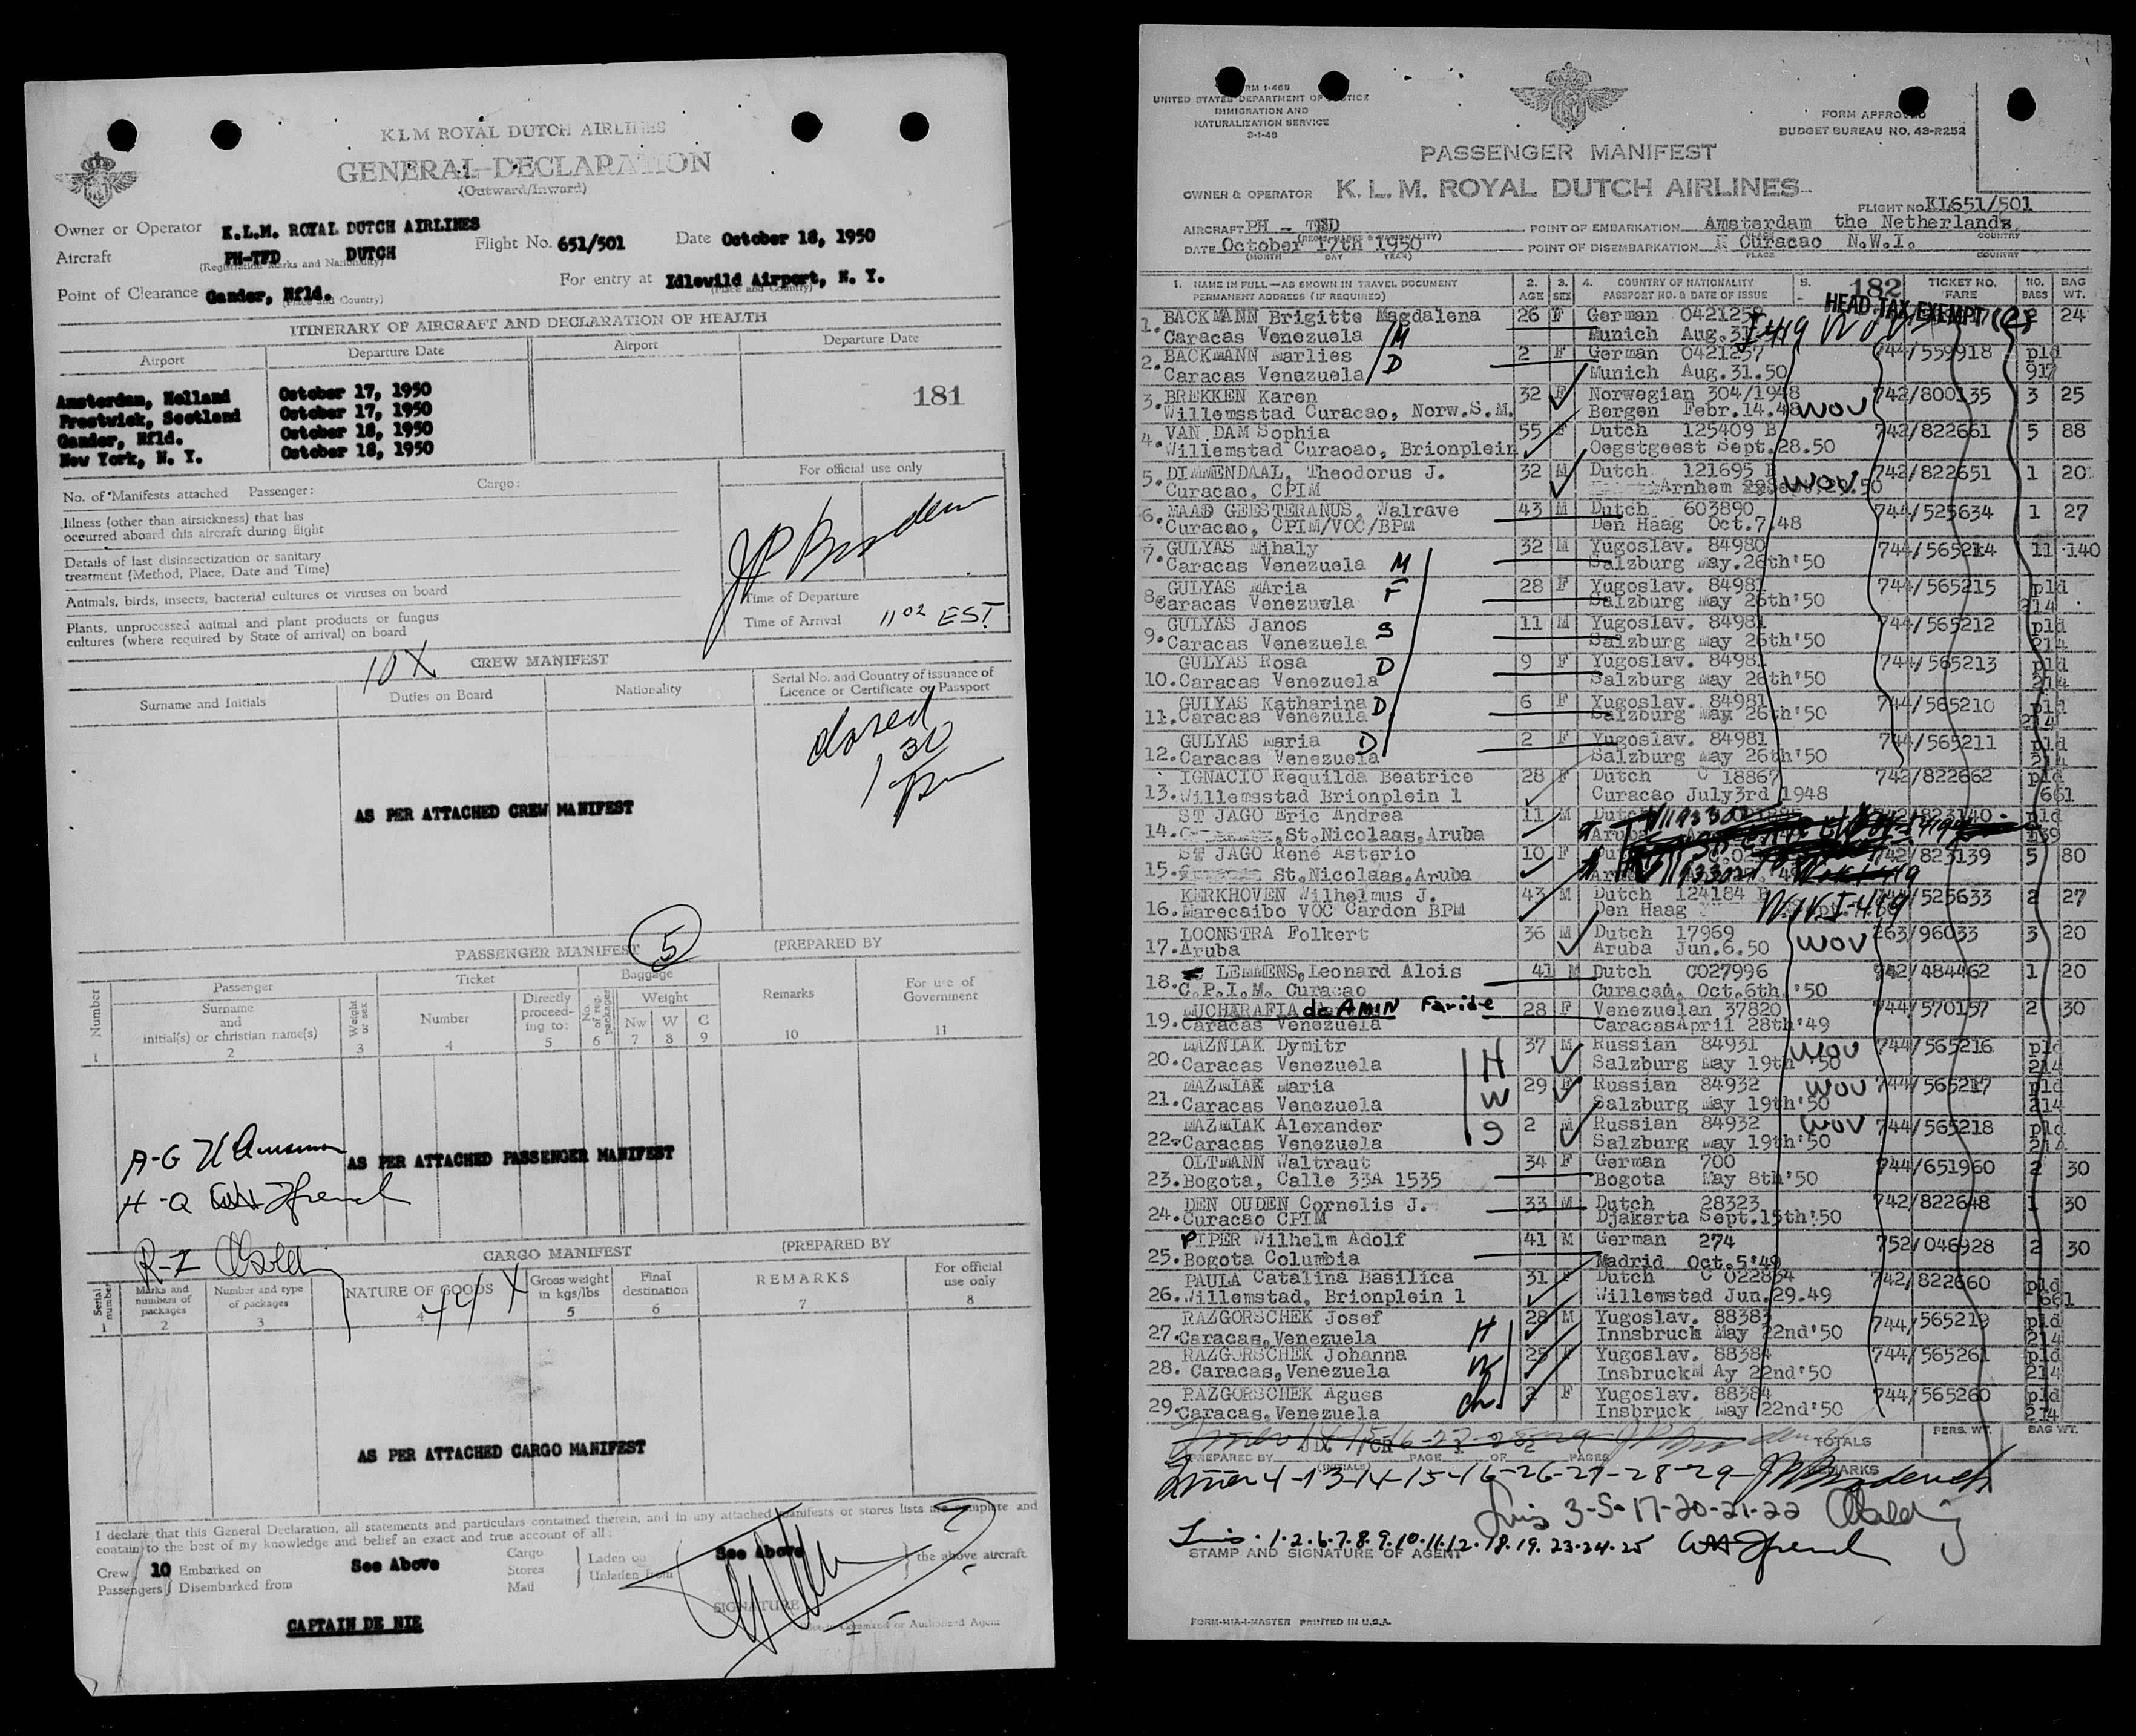 K L M ROYAL DUTCH AIRLINES
GENERAL DECLARATION
(Outward/Inward)
Owner or Operator K.L.M. ROYAL DUTCH AIRLINES
Aircraft PH-TFD DUTCH Flight No. 651/501 Date October 18, 1950
(Registration Marks and Nationality)
Point of Clearance Gander, Nfld. For entry at Idlewild Airport, N. Y.
(Place and Country) (Place and Country)
ITINERARY OF AIRCRAFT AND DECLARATION OF HEALTH
Airport Departure Date Airport Departure Date
Amsterdam, Holland October 17, 1950 181
Prestwick, Scotland October 17, 1950
Gander, Nfld. October 18, 1950
New York, N. Y. October 18, 1950
For official use only
No. of Manifests attached Passenger: Cargo:
Illness (other than airsickness) that has
occurred aboard this aircraft during flight
Details of last disinsectization or sanitary
treatment (Method, Place, Date and Time)
Animals, birds, insects, bacterial cultures or viruses on board
Plants, unprocessed animal and plant products or fungus
cultures (where required by State of arrival) on board
Time of Departure
Time of Arrival 11 02 EST
10X CREW MANIFEST
Surname and Initials Duties on Board Nationality Serial No. and Country of issuance of Licence or Certificate or Passport
closed
1 30
pm
AS PER ATTACHED CREW MANIFEST
PASSENGER MANIFEST 5 (PREPARED BY
Number Passenger Ticket Baggage Remarks For use of Government
Surname and initial(s) or christian name(s) Weight or sex Number Directly proceeding to: No. of reg. packages Weight
Nw W C
1 2 3 4 5 6 7 8 9 10 11
A-G
AS PER ATTACHED PASSENGER MANIFEST
H-Q
R-Z
CARGO MANIFEST (PREPARED BY
Serial number Marks and numbers of packages Number and type of packages NATURE OF GOODS Gross weight in kgs/lbs Final destination REMARKS For official use only
1 2 3 4 5 6 7 8
44 X
AS PER ATTACHED CARGO MANIFEST
I declare that this General Declaration, all statements and particulars contained therein, and in any attached manifests or stores lists are complete and
contain to the best of my knowledge and belief an exact and true account of all:
Crew 10 Embarked on See Above Cargo Laden on See Above the above aircraft
Passengers Disembarked from Stores Unladen from
Mail
SIGNATURE
CAPTAIN DE NIE
in Command or Authorized Agent
FORM I-466
UNITED STATES DEPARTMENT OF JUSTICE
IMMIGRATION AND
NATURALIZATION SERVICE
FORM APPROVED
BUDGET BUREAU NO. 43-R252
PASSENGER MANIFEST
OWNER & OPERATOR K. L. M. ROYAL DUTCH AIRLINES
FLIGHT NO. KL651/501
AIRCRAFT PH - TFD POINT OF EMBARKATION Amsterdam the Netherlands
DATE October 17th 1950 POINT OF DISEMBARKATION Curacao N.W.I.
(MONTH DAY YEAR) PLACE COUNTRY
1. NAME IN FULL—AS SHOWN IN TRAVEL DOCUMENT PERMANENT ADDRESS (IF REQUIRED) 2. AGE 3. SEX 4. COUNTRY OF NATIONALITY PASSPORT NO. & DATE OF ISSUE 5. 182 TICKET NO. FARE NO. BAGS BAG WT.
HEAD TAX EXEMPT (2)
1. BACKMANN Brigitte Magdalena 26 F German 2 24
Caracas Venezuela M Munich Aug.31 I-419
2. BACKMANN Marlies 2 F German 0421257 744/559918 pld
Caracas Venezuela D Munich Aug.31.50 917
3. BREKKEN Karen 32 F Norwegian 304/1948 742/800135 3 25
Willemsstad Curacao, Norw.S.M. Bergen Febr.14.48 WOV
4. VAN DAM Sophia 55 F Dutch 125409 B 742/822661 5 88
Willemstad Curacao, Brionplein Oegstgeest Sept.28.50
5. DIMMENDAAL, Theodorus J. 32 M Dutch 121695 B 742/822651 1 20
Curacao, CPIM Arnhem WOV
6. MAAS GEESTERANUS, Walrave 43 M Dutch 603890 744/525634 1 27
Curacao, CPIM/VOC/BPM Den Haag Oct.7.48
7. GULYAS Mihaly 32 M Yugoslav. 84980 744/565214 11 140
Caracas Venezuela M Salzburg May.26th'50
8. GULYAS MAria F 28 F Yugoslav. 84981 744/565215 pld
Caracas Venezuela Salzburg May 26th'50 214
9. GULYAS Janos 11 M Yugoslav. 84981 744/565212 pld
Caracas Venezuela S Salzburg May 26th'50 214
GULYAS Rosa D 9 F Yugoslav. 84981 744/565213 pld
10. Caracas Venezuela Salzburg May 26th'50 214
GULYAS Katharina D 6 F Yugoslav. 84981 744/565210 pld
11. Caracas Venezuela Salzburg May 26th'50 214
GULYAS Maria D 2 F Yugoslav. 84981 744/565211 pld
12. Caracas Venezuela Salzburg May 26th'50 214
IGNACIO Requilda Beatrice 28 F Dutch C 18867 742/822662 pld
13. Willemsstad Brionplein 1 Curacao July3rd 1948 661
ST JAGO Eric Andrea 11 M Dutch pld
14. St.Nicolaas,Aruba Aruba 139
ST JAGO René Asterio 10 F 742/823139 5 80
15. St.Nicolaas,Aruba
KERKHOVEN Wilhelmus J. 43 M Dutch 124184 B 744/525633 2 27
16. Marecaibo VOC Cardon BPM Den Haag I-419
LOONSTRA Folkert 36 M Dutch 17969 263/96033 3 20
17. Aruba Aruba Jun.6.50 WOV
LEMMENS, Leonard Alois 41 M Dutch C027996 942/484462 1 20
18. C.P.I.M. Curacao Curacao, Oct.6th.'50
MUCHARAFIA de AMIN Faride 28 F Venezuelan 37820 744/570157 2 30
19. Caracas Venezuela CaracasApril 28th'49
MAZNIAK Dymitr H 37 M Russian 84931 WOV 744/565216 pld
20. Caracas Venezuela Salzburg May 19th'50 214
MAZNIAK Maria W 29 F Russian 84932 WOV 744/565217 pld
21. Caracas Venezuela Salzburg May 19th'50 214
MAZNIAK Alexander S 2 M Russian 84932 WOV 744/565218 pld
22. Caracas Venezuela Salzburg May 19th'50 214
OLTMANN Waltraut 34 F German 700 744/651960 2 30
23. Bogota, Calle 33A 1535 Bogota May 8th'50
DEN OUDEN Cornelis J. 33 M Dutch 28323 742/822648 1 30
24. Curacao CPIM Djakarta Sept.15th'50
PIPER Wilhelm Adolf 41 M German 274 752/046928 2 30
25. Bogota Columbia Madrid Oct.5'49
PAULA Catalina Basilica 31 F Dutch C 022834 742/822660 pld
26. Willemstad, Brionplein 1 Willemstad Jun.29.49 661
RAZGORSCHEK Josef H 28 M Yugoslav. 88383 744/565219 pld
27. Caracas,Venezuela Innsbruck May 22nd'50 214
RAZGORSCHEK Johanna W 25 F Yugoslav. 88384 744/565261 pld
28. Caracas,Venezuela InsbruckM Ay 22nd'50 214
RAZGORSCHEK Agues ch. 2 F Yugoslav. 88384 744/565260 pld
29. Caracas,Venezuela Insbruck May 22nd'50 214
TOTALS PERS. WT. BAG WT.
PREPARED BY (INITIALS) PAGE OF PAGES REMARKS
4-13-14-15-16-26-27-28-29
3-5-17-20-21-22
1.2.6.7.8.9.10.11.12.18.19.23.24.25
STAMP AND SIGNATURE OF AGENT
FORM-HIA-I-MASTER PRINTED IN U.S.A.